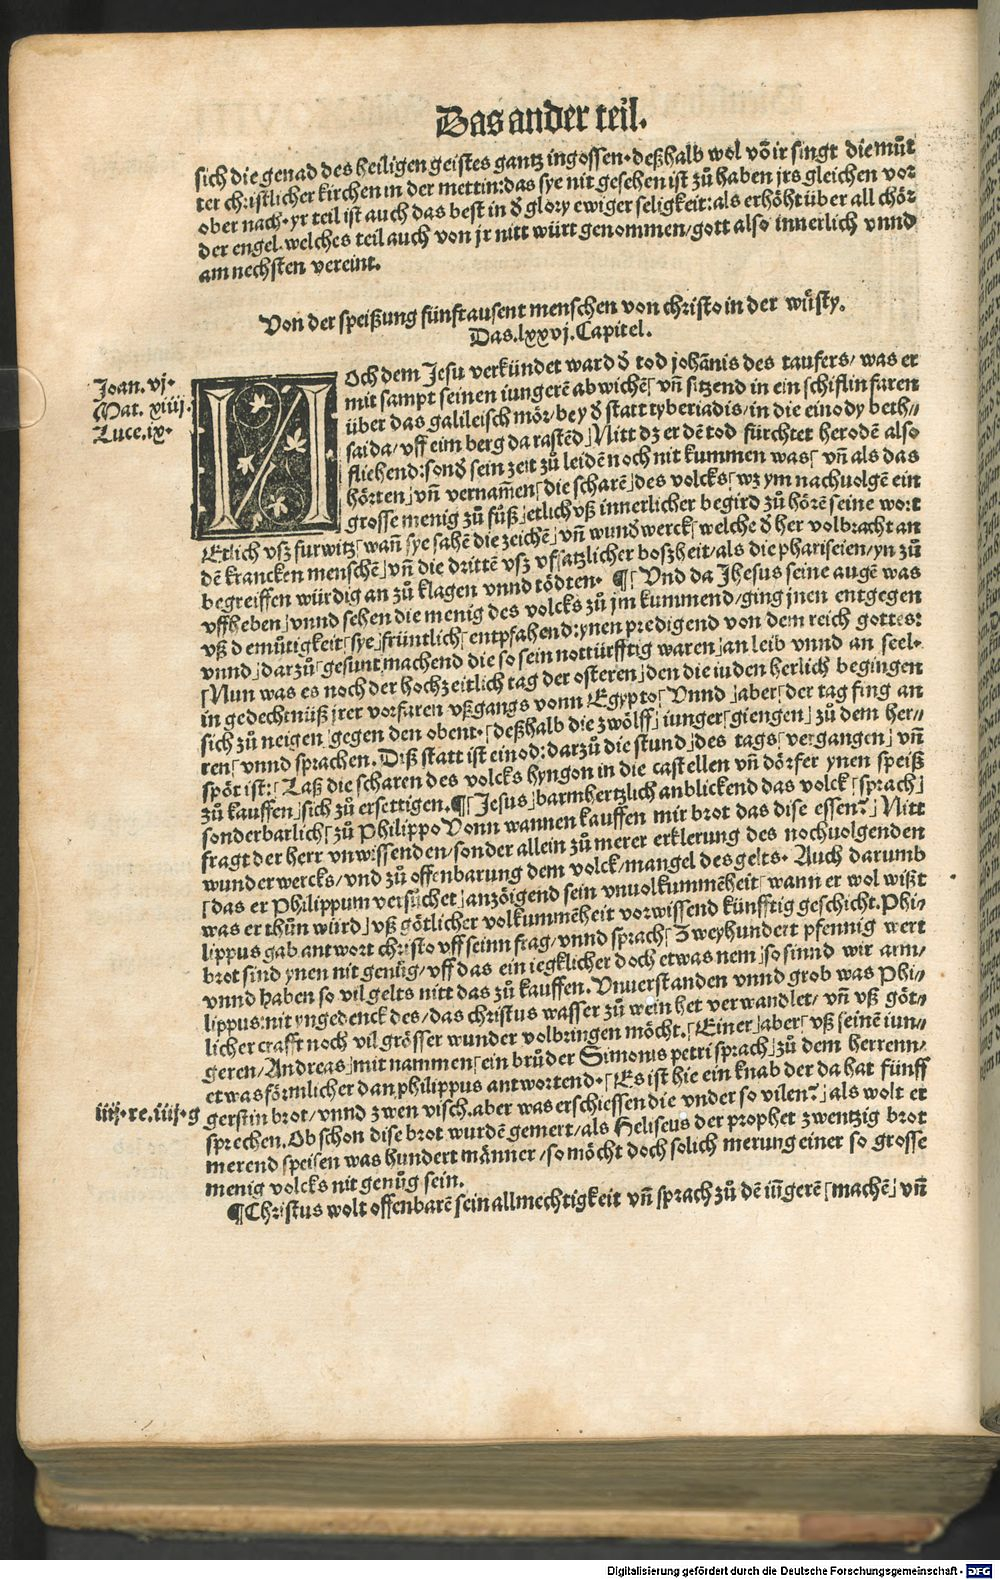 Das ander teil.
sich die genad des heiligen geistes gantz ingossen. deßhalb wol võ ir singt die můt
ter christlicher kirchen in der mettin: das sye nit gesehen ist zů haben jrs gleichen vor
ober nach. yr teil ist auch das best in d̕ glory ewiger seligkeit: als erhöht über all chör
der engel. welches teil auch von jr nitt würt genommen/ gott also innerlich vnnd
am nechsten vereint.
Von der speißung fünftausent menschen von christo in der wůsty.
Das. lxxvj. Capitel.
Joan. vj.
Mat. xiiij.
Luce. ix.
NOch dem Jesu verkündet ward d̕ tod johãnis des taufers/ was er
mit sampt seinen iungerẽ abwichẽ⌈ vñ sitzend in ein schiflin faren
über das galileisch mör/ bey d̕ statt tyberiadis/ in die einody beth//
saida/ vff eim berg da rastẽd⌋ Nitt dz er dẽ tod fürchtet herodẽ also
fliehend: sond̕ sein zeit zů leidẽ noch nit kummen was⌈ vñ als das
hörten⌋ vñ vernam̃en⌈ die scharẽ⌋ des volcks⌈ wz ym nachuolgẽ ein
grosse menig zů fůß⌋ etlich vß innerlicher begird zů hörẽ seine wort
Etlich vsz furwitz⌈ wañ sye sahẽ die zeichẽ⌋ vñ wund̕werck⌈ welche d̕ her volbracht an
dẽ krancken menschẽ⌋ vñ die drittẽ vsz vfsatzlicher boszheit/ als die phariseien/ yn zů
begreiffen würdig an zů klagen vnnd tödten. ¶⌈ Vnd da Jhesus seine augẽ was
vffheben⌋ vnnd sehen die menig des volcks zů jm kummend/ ging jnen entgegen
vß demůtigkeit⌈ sye⌋ früntlich⌈ entpfahend: ynen predigend von dem reich gottes:
vnnd⌋ darzů⌈ gesunt machend die so sein notturfftig waren⌋ an leib vnnd an seel.
⌈Nun was es noch der hochzeitlich tag der osteren⌋ den die iuden herlich begingen
in gedechtnüß jrer vorfaren vßgangs vonn Egypto⌈ Vnnd⌋ aber⌈ der tag fing an
sich zů neigen⌋ gegen den obent. ⌈deßhalb die zwölff⌋ iunger⌈ giengen⌋ zů dem her//
ren⌈ vnnd sprachen. Diß statt ist einod: darzů die stund⌋ des tags⌈ vergangen⌋ vñ
spöt ist: ⌈Laß die scharen des volcks hyngon in die castellen vñ dörfer ynen speiß
zů kauffen⌋ sich zů ersettigen. ¶⌈ Jesus⌋ barmhertzlich anblickend das volck⌈ sprach⌋
sonderbarlich⌈ zů Philippo Vonn wannen kauffen mir brot das dise essen?⌋ Nitt
fragt der herr vnwissenden/ sonder allein zů merer erklerung des nochuolgenden
wunderwercks/ vnd zů offenbarung dem volck/ mangel des gelts. Auch darumb
⌈das er Philippum versůchet⌋ anzöigend sein vnuolkummẽheit⌈ wann er wol wißt
was er thůn würd⌋ vß götlicher volkummẽheit vorwissend künfftig geschicht. Phi//
lippus gab antwort christo vff seinn frag/ vnnd sprach⌈ Zweyhundert pfennig wert
brot sind ynen nit genůg/ vff das ein iegklicher doch etwas nem⌋ so sinnd wir arm/
vnnd haben so vil gelts nitt das zů kauffen. Vnuerstanden vnnd grob was Phi//
lippus: nit yngedenck des/ das christus wasser zů wein het verwandlet/ vñ vß göt//
licher crafft noch vil grösser wunder volbringen möcht. ⌈Einer⌋ aber⌈ vß seinẽ iun//
geren/ Andreas⌋ mit nammen⌈ ein brůder Simonis petri sprach⌋ zů dem herrenn/
etwas förmlicher dan philippus antwortend. ⌈Es ist hie ein knab der da hat fünff
iiij. re. iiij. g
gerstin brot/ vnnd zwen visch. aber was erschiessen die vnder so vilen?⌋ als wolt er
sprechen. Ob schon dise brot wurdẽ gemert/ als Heliseus der prophet zwentzig brot
merend speisen was hundert männer/ so möcht doch solich merung einer so grosse
menig volcks nit genůg sein.
¶Christus wolt offenbarẽ sein allmechtigkeit vñ sprach zů dẽ iũgerẽ⌈ machẽ⌋ vñ
Digitalisierung gefördert durch die Deutsche Forschungsgemeinschaft - DFG